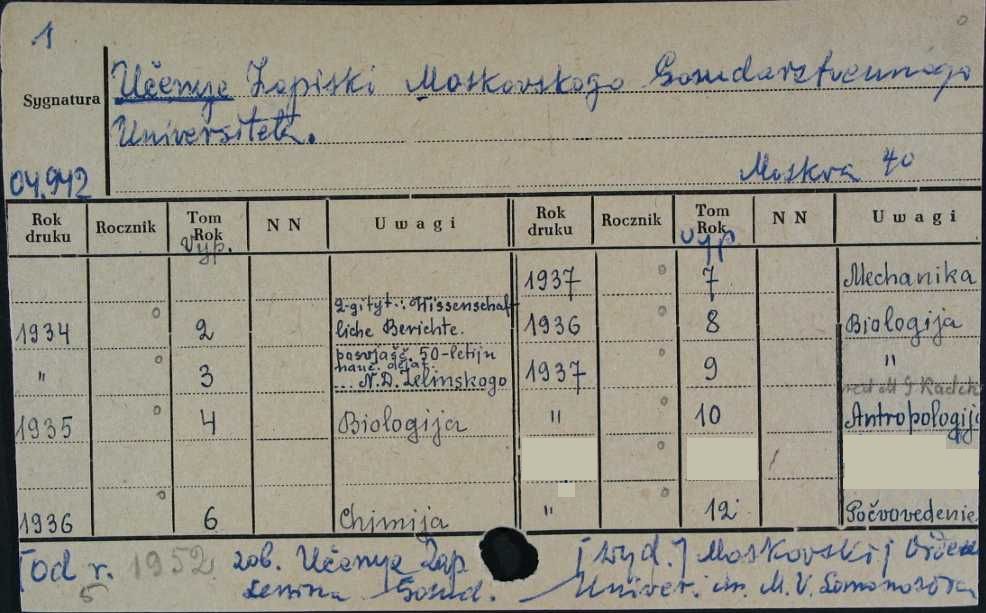 1
Učenye Zapiski Moskovskogo Gosudarstvennogo
Sygnatura
Universiteta.
Moskva 40
04.942
Rok druku Rocznik Tom Rok N N Uwagi Rok druku Rocznik Tom Rok N N Uwagi
Vyp. Vyp
1937 7 Mechanika
2-gi tyt.: Wissenschaft-
1934 2 liche Berichte. 1936 8 Biologija
posvjašč. 50-letiju
nauč. dejat.
" 3 ... N.D. Zelinskogo 1937 9 "
1935 4 Biologija " 10 Antropologija
1936 6 Chimija " 12 Počvovedenie
[od r. 1952 zob. Učenye Zap. [wyd.] Moskovskij Ordena
5 Lenina Gosud. Univer. im. M.V. Lomonosova